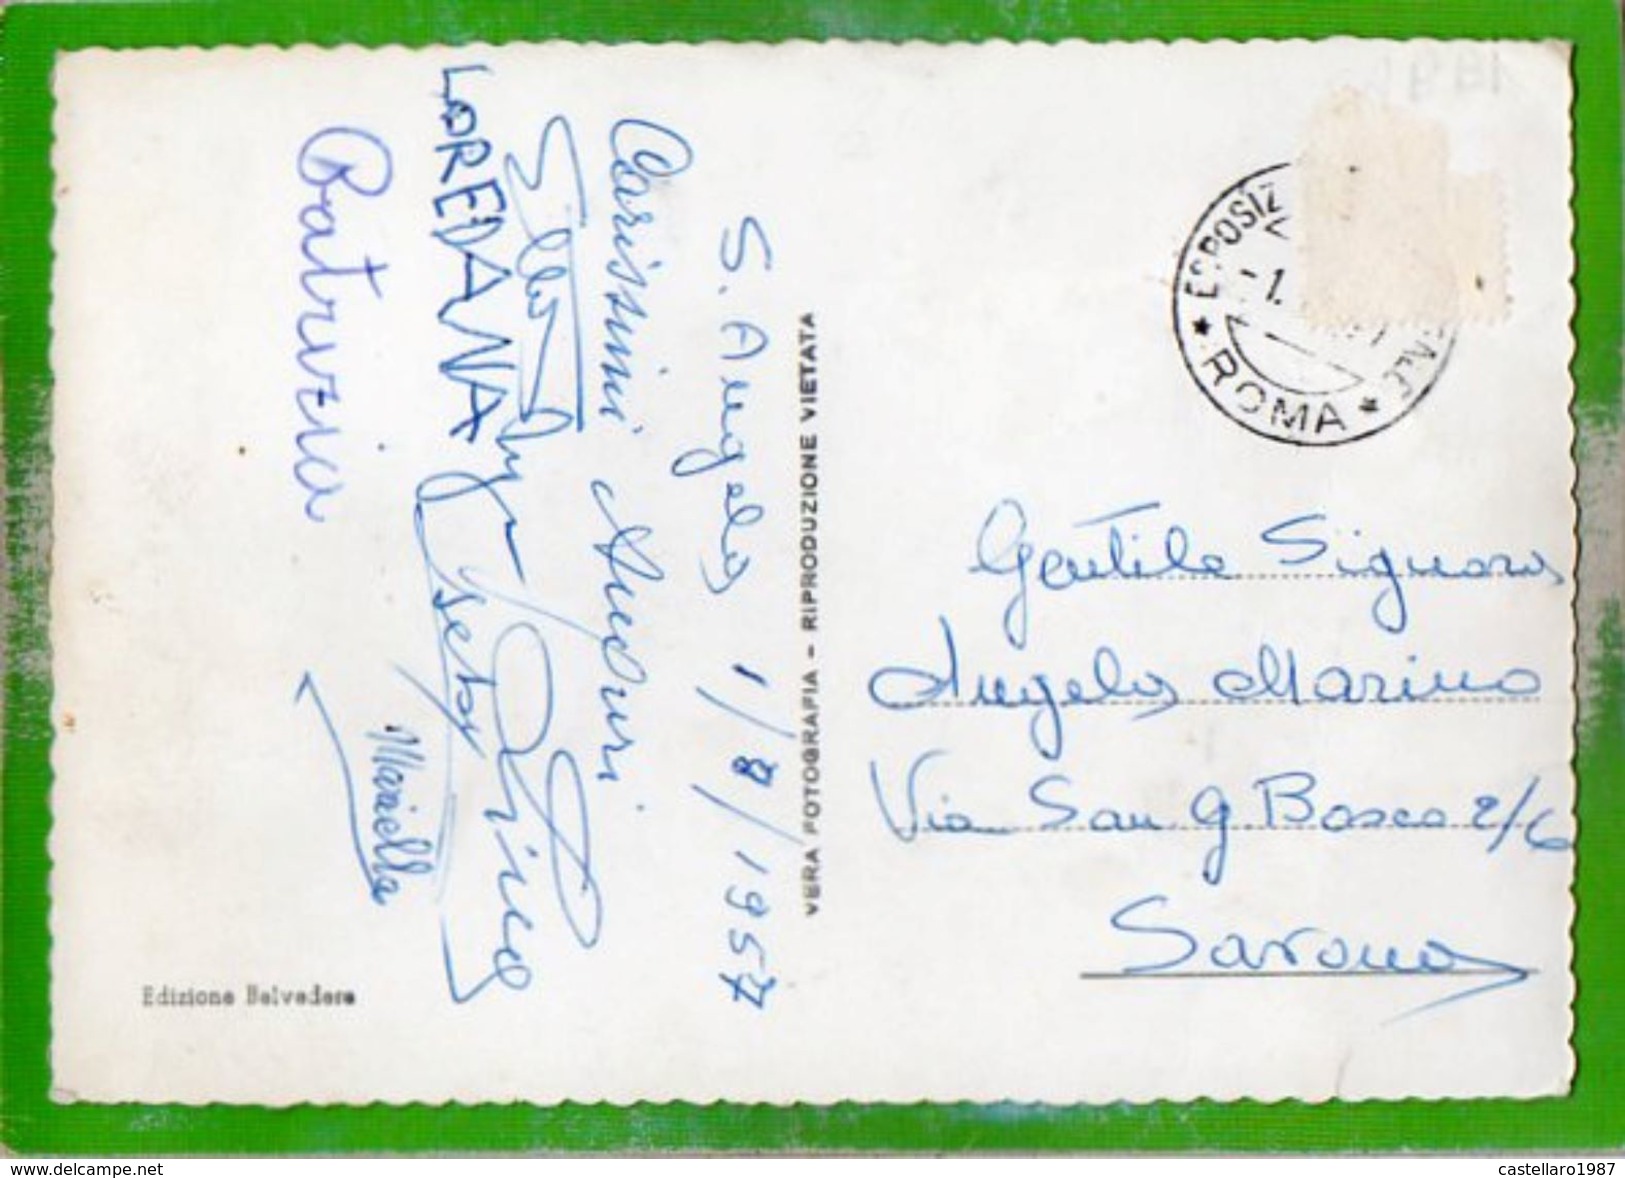 S. Angelo 1/8/1957
Carissimi Auguri
LOREDANA
Patrizia
Mariella
VERA FOTOGRAFIA - RIPRODUZIONE VIETATA
Edizione Belvedere
ROMA
Gentile Signora
Angela Marino
Via San G Bosco 2/6
Savona
www.delcampe.net
castellaro1987